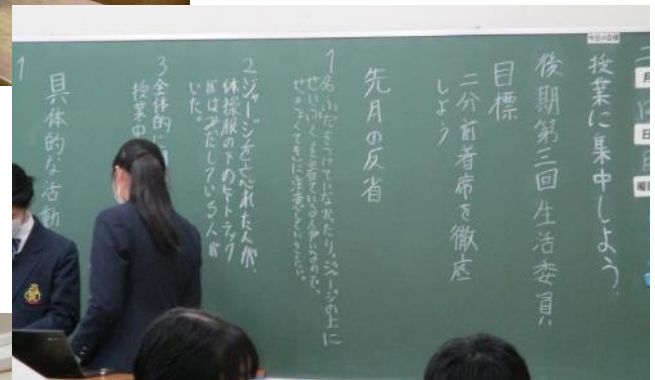 二
月
日
月
曜日
今日の目標
授業に集中しよう。
後期第三回生活委員
目標
二分前着席を徹底
しよう
先月の反省
1 名ふだをつけていなかったり、ジャージの上に
2 ジャージを忘れた人が、
体操服の下のヒートテック
がはみだしている人が
いた。
3 全体的に
授業中
具体的な活動
1